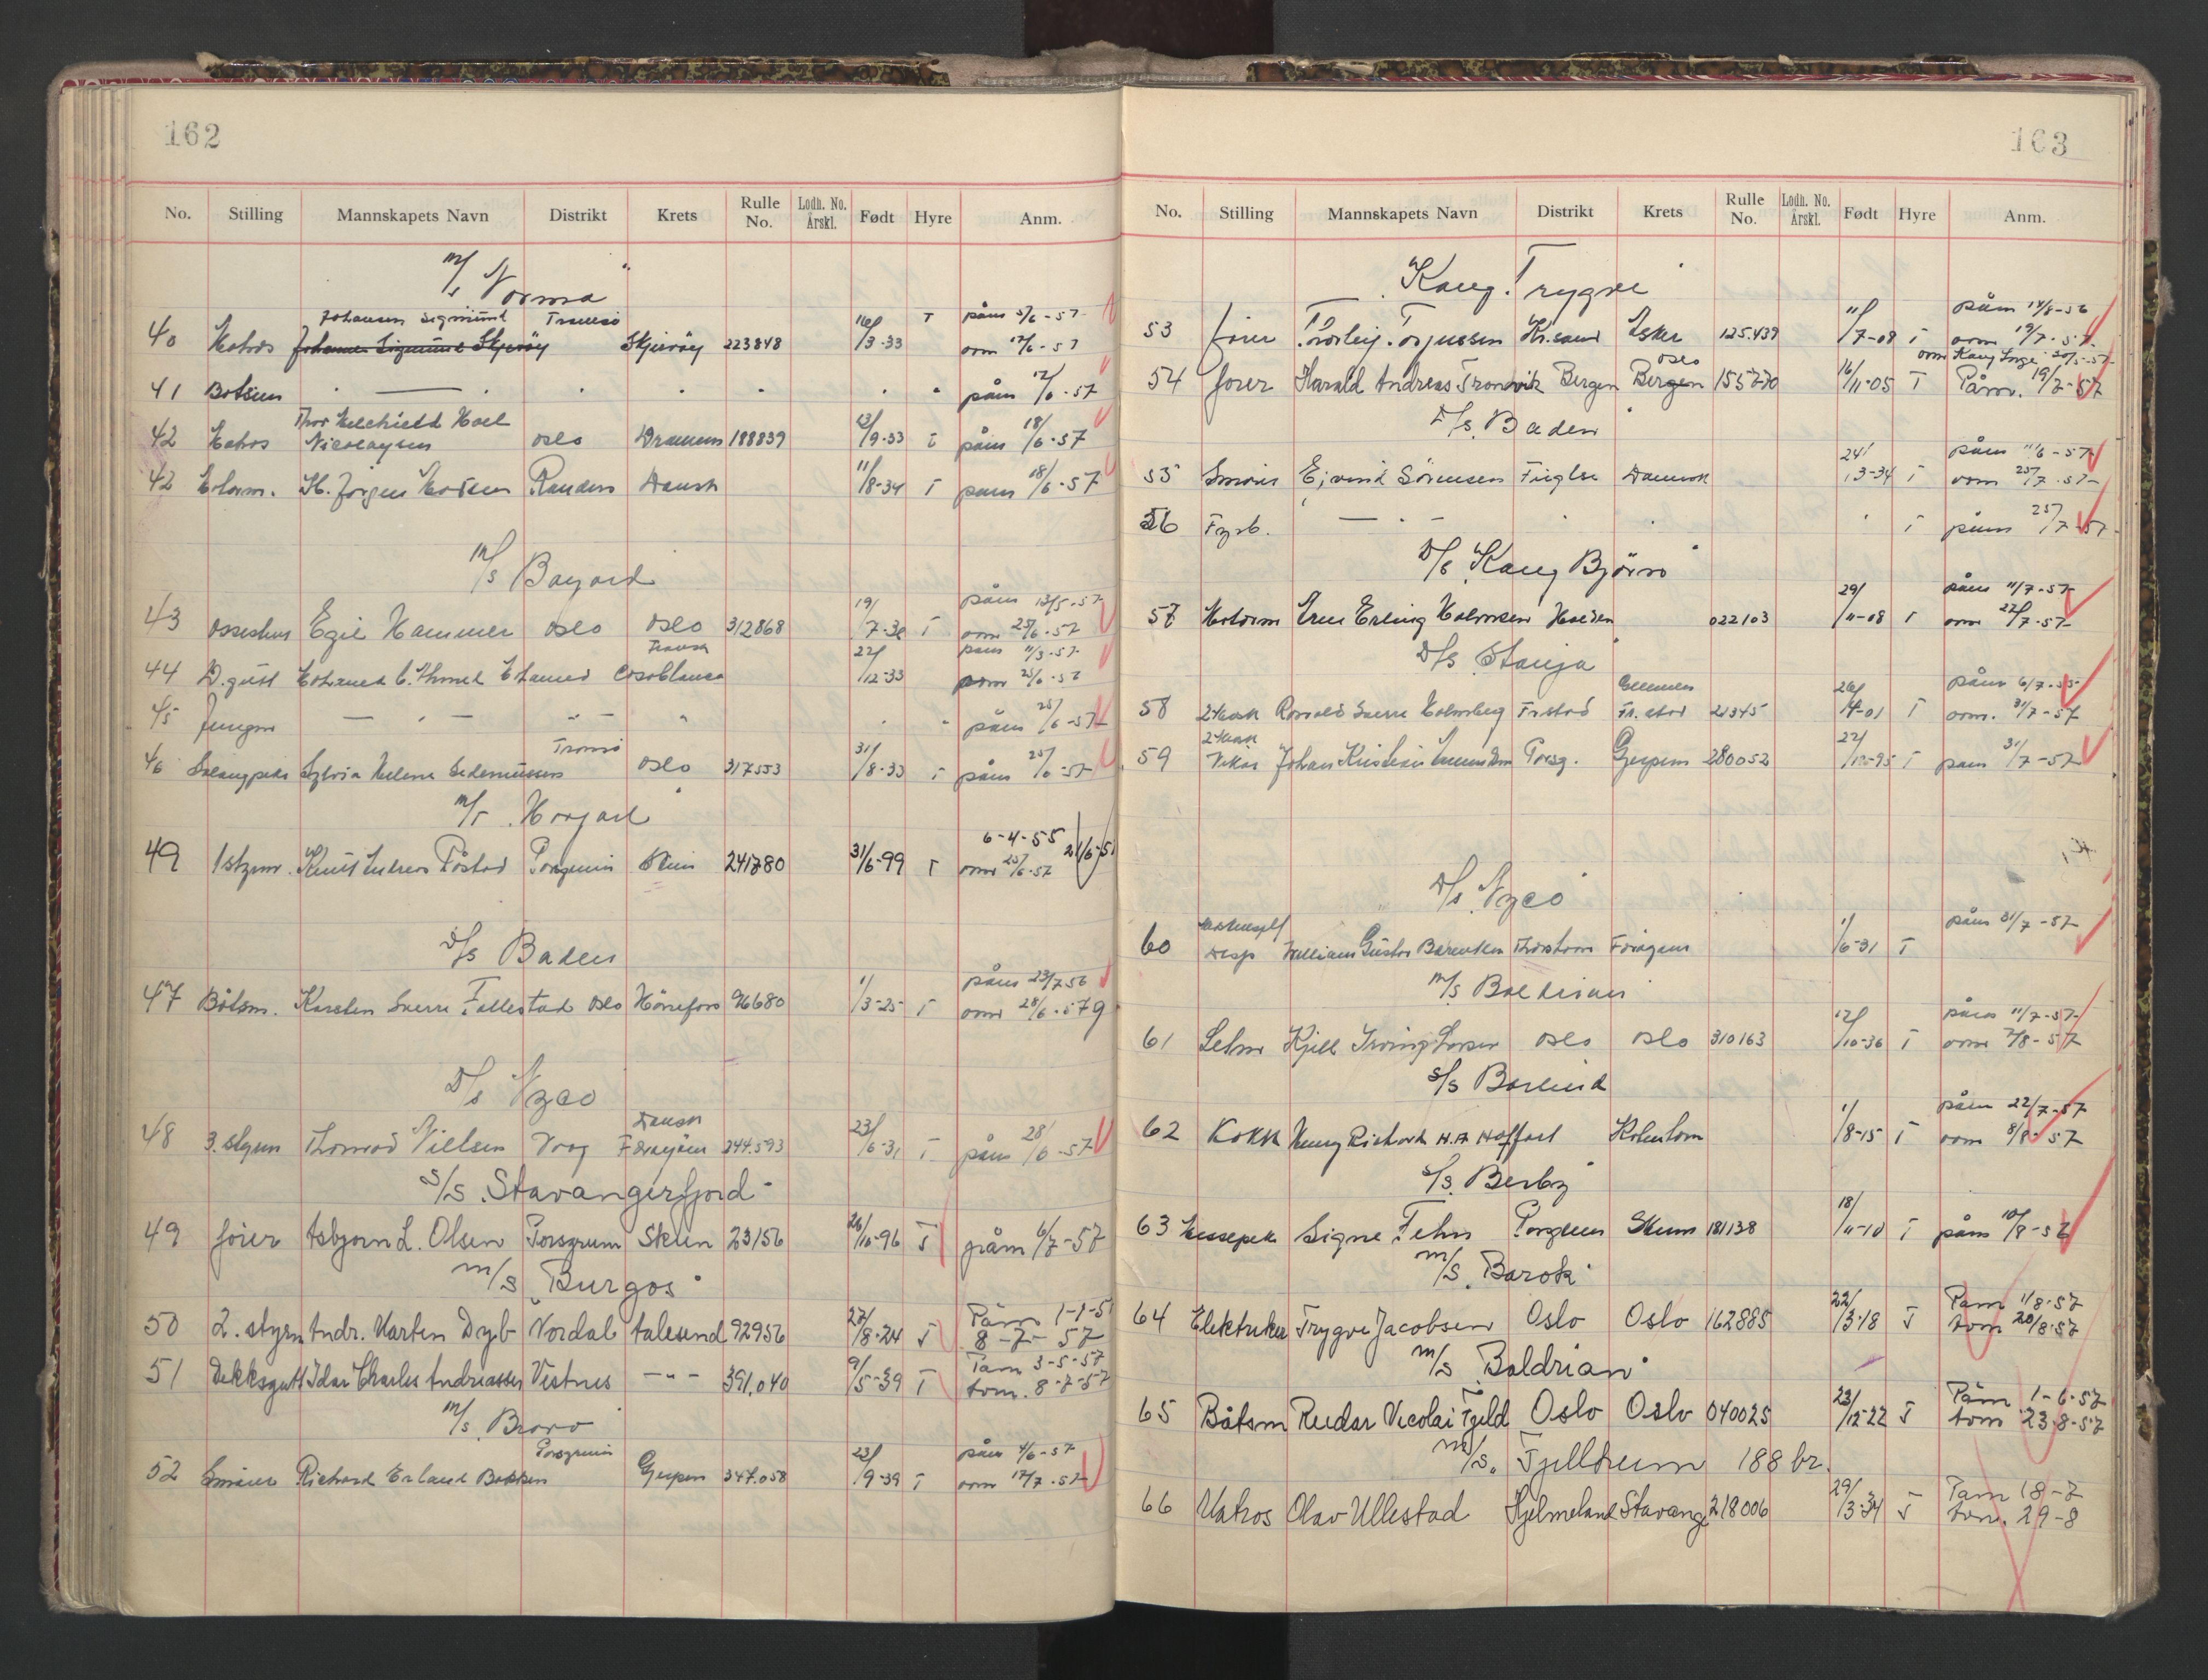 162
No. Stilling Mannskapets Navn Distrikt Krets Rulle No. Lodh. No. Årskl. Født Hyre Anm.
M/s Norma"
Johansen Sigmund Tromsö påm 5/6-57
40 Matros Johansen Sigmund Skjervöy Skjervöy 223848 16/3-33 T avm 12/6-57
41 Båtsm - " - " " " " " påm 12/6-57
Thor Melchiold Hoel
42 Matros Nicolaysen Oslo Drammen 188839 12/9-33 T påm 18/6-57
42 Motorm. H. Jörgen Madsen Randers Dansk 11/8-34 T påm 18/6-57
M/s Bayard
påm 13/5-57
43 Egil Hammer Oslo Oslo 312868 19/7-38 T avm 25/6-57
Fransk påm 11/3-57
44 D.gutt Mohamed Mohamed Casablanca 22/12-33 avm 25/6-57
45 Jungm - " - " - " " " påm 25/6-57
Tromsö
46 Salongpike Sylvia Helene Oslo 317553 31/8-33 T påm 25/6-57
M/T "Norjarl"
6-4-55
49 1 styrm. Knut Andreas Porsgrunn Skien 241780 31/6-99 T avm 25/6-57
D/s Baden
påm 23/7 56
47 Båtsm. Karsten Sverre Fallestad Oslo Hönefoss 96680 1/3-25 T avm 28/6-57
D/s Nyco
Dansk
48 3. styrm Thormod Nielsen Vaag Færøyane 244.593 23/6-31 T påm 28/6-57
S/S "Stavangerfjord"
49 fører Asbjørn L. Olsen Porsgrunn Skien 23156 26/10-96 T påm 6/7-57
M/S "Burgos"
Påm 1-1-57
50 2. styrm Andr. Marten Dyb Nordal Aalesund 92956 27/8-24 T 8-7-57
Påm 3-5-57
51 Dekksgutt Idar Charles Andreassen Vestnes - " - 391.040 9/5-39 T Avm. 8-7-57
M/s "Bravo"
Porsgrunn påm 4/6-57
52 Smører Richard Erland Bakken Gjerpen 347.058 23/9-39 T avm 17/7-57
163
No. Stilling Mannskapets Navn Distrikt Krets Rulle No. Lodh. No. Årskl. Født Hyre Anm.
"Kong Trygve"
påm 14/8-56
53 fører Thorleif Torjussen Kr.sand Esker 125.439 11/7-08 T avm 19/7-57
Oslo avm Kong Inge 20/5-57
54 fører Harald Andreas Tronvik Bergen Bergen 155770 16/11-05 T Påm. 19/7-57
D/s "Baden"
påm 11/6-57
55 Smører Ejvind Sörensen Fuglse Danmark 24/3-34 T avm 25/7-57
56 Fyrb. - " - " " " T påm 25/7-57
D/s "Kong Björn"
påm 11/7-57
57 Motorm Arne Erling Halvorsen Halden 022103 29/11-08 T avm 22/7-57
D/s "Stanja"
påm 6/7-55
58 2 kokk Ronald Sverre Holmberg Fr.stad Fr.stad 21345 26/4-01 T avm. 31/7-57
2 kokk
59 Vikar Johan Kristian Porsg. Gjerpen 280052 22/12-95 T påm 31/7-57
D/s "Nyco"
påm 31/7-57
60 William Gustav Berentsen Thorshavn Færøyane 1/6-31 T
M/s Baldrian
påm 11/7-57
61 Letm Kjell Irving Larsen Oslo Oslo 310163 12/10-36 T avm 2/8-57
S/s Borlind
påm 22/7-57
62 Kokk Henry Richard H.A. Hoffart Kobenhavn 1/8-15 T avm 8/8-57
S/s "Berby"
63 Messepike Signe Fehn Porsgrunn Skien 181138 18/11-10 T påm 10/8-57
M/S "Barok"
Påm 1/8-57
64 Elektriker Trygve Jacobsen Oslo Oslo 162885 22/3-18 T Avm 20/8-57
M/s "Baldrian"
Påm 1-6-57
65 Båtsm Reidar Nicolai Fjeld Oslo Oslo 040025 23/12-22 T Avm 23-8-57
M/s. Fjellheim 188 br.
Påm 18-7
66 Matros Olav Ullestad Hjelmeland Stavang 218006 29/3-34 T Avm. 29-8